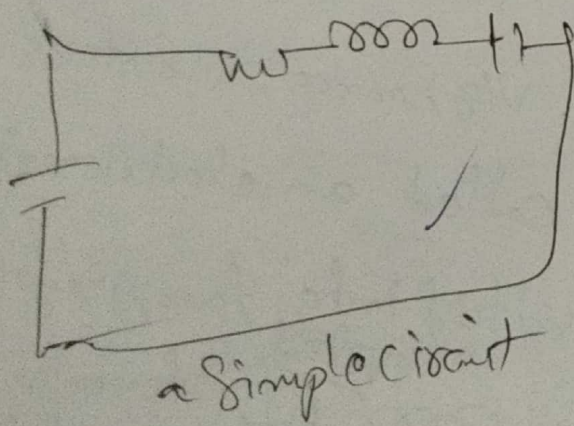 a Simple Circuit